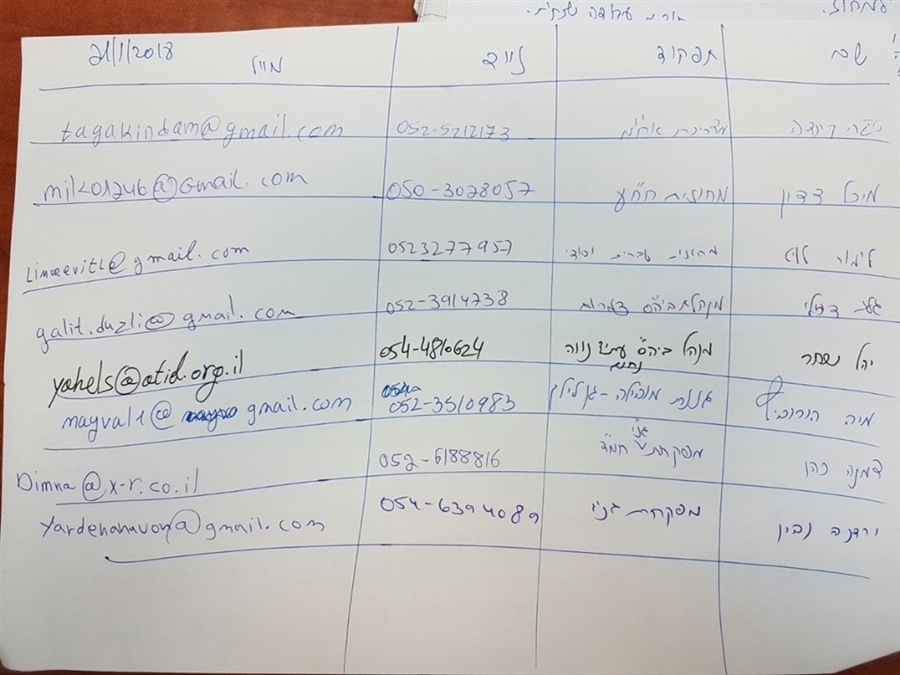 למחוז.
21/1/2018
שם תפקיד נייד מייל
מדריכת 052-5212173 tagakindam@gmail.com
מיכל דדון מחוזית חח"ע 050-3028057
לימור לוי מחוזית עברית יסודי 0523277957 Limorevitl@gmail.com
גלית דוזלי מנהלת ביה"ס 052-3914738 galit.duzli@gmail.com
יהל שחר מנהל ביה"ס עתיד נווה 054-4810624 yahels@atid.org.il
מיה גננת מובילה - גן לילך 052-3510983 mayval1@gmail.com
דמנה כהן מפקחת גני חמ"ד 052-6188816 Dimna@x-r.co.il
ירדנה נבון מפקחת גני 054-6394089 yardenanavon@gmail.com